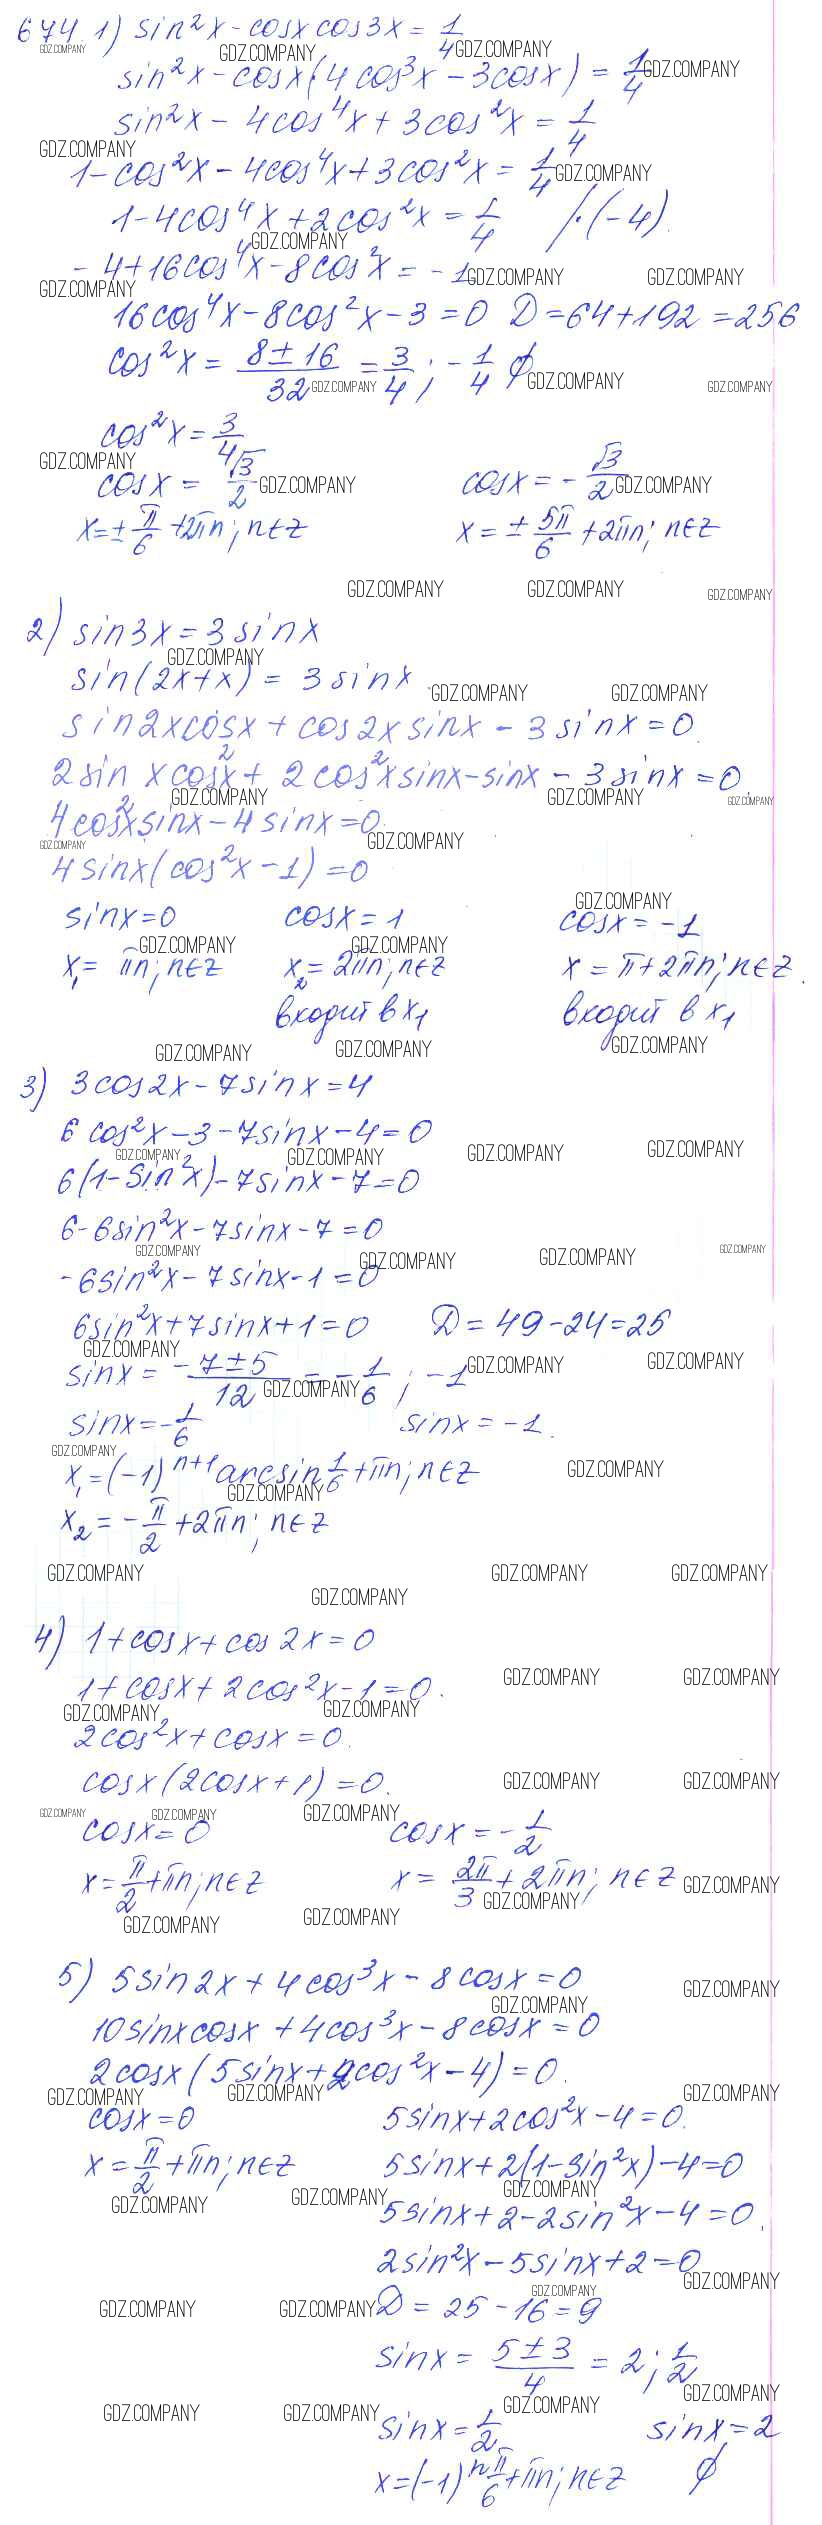 674. 1) sin²x - cosx cos3x = 1/4
sin²x - cosx(4cos³x - 3cosx) = 1/4
sin²x - 4cos⁴x + 3cos²x = 1/4
1 - cos²x - 4cos⁴x + 3cos²x = 1/4
1 - 4cos⁴x + 2cos²x = 1/4 /·(-4).
- 4 + 16cos⁴x - 8cos²x = -1
16cos⁴x - 8cos²x - 3 = 0 D = 64 + 192 = 256
cos²x = (8 ± 16)/32 = 3/4; -1/4 ∅
cos²x = 3/4
cosx = √3/2 cosx = -√3/2
x = ± π/6 + 2πn; n∈Z x = ± 5π/6 + 2πn; n∈Z
2) sin3x = 3sinx
sin(2x+x) = 3sinx
sin2xcosx + cos2xsinx - 3sinx = 0.
2sinxcos²x + 2cos²xsinx - sinx - 3sinx = 0.
4cos²xsinx - 4sinx = 0.
4sinx(cos²x - 1) = 0
sinx = 0 cosx = 1 cosx = -1
x₁ = πn; n∈Z x₂ = 2πn; n∈Z x = π + 2πn; n∈Z.
входит в x₁ входит в x₁
3) 3cos2x - 7sinx = 4
6cos²x - 3 - 7sinx - 4 = 0
6(1 - sin²x) - 7sinx - 7 = 0
6 - 6sin²x - 7sinx - 7 = 0
-6sin²x - 7sinx - 1 = 0
6sin²x + 7sinx + 1 = 0 D = 49 - 24 = 25
sinx = (-7 ± 5)/12 = -1/6; -1
sinx = -1/6 sinx = -1.
x₁ = (-1)ⁿ⁺¹ arcsin 1/6 + πn; n∈Z
x₂ = -π/2 + 2πn; n∈Z
4) 1 + cosx + cos2x = 0
1 + cosx + 2cos²x - 1 = 0.
2cos²x + cosx = 0.
cosx(2cosx + 1) = 0.
cosx = 0 cosx = -1/2
x = π/2 + πn; n∈Z x = 2π/3 + 2πn; n∈Z
5) 5sin2x + 4cos³x - 8cosx = 0
10sinxcosx + 4cos³x - 8cosx = 0
2cosx(5sinx + 2cos²x - 4) = 0.
cosx = 0 5sinx + 2cos²x - 4 = 0.
x = π/2 + πn; n∈Z 5sinx + 2(1 - sin²x) - 4 = 0
5sinx + 2 - 2sin²x - 4 = 0.
2sin²x - 5sinx + 2 = 0
D = 25 - 16 = 9
sinx = (5 ± 3)/4 = 2; 1/2
sinx = 1/2 sinx = 2
x = (-1)ⁿ π/6 + πn; n∈Z ∅
GDZ.COMPANY